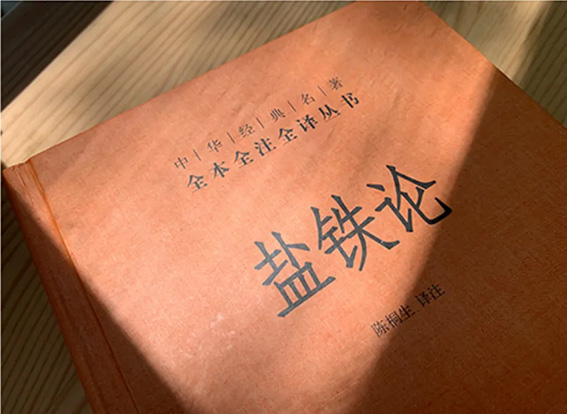 中|华|经|典|名|著
全本全注全译丛书
盐铁论
陈桐生 译注